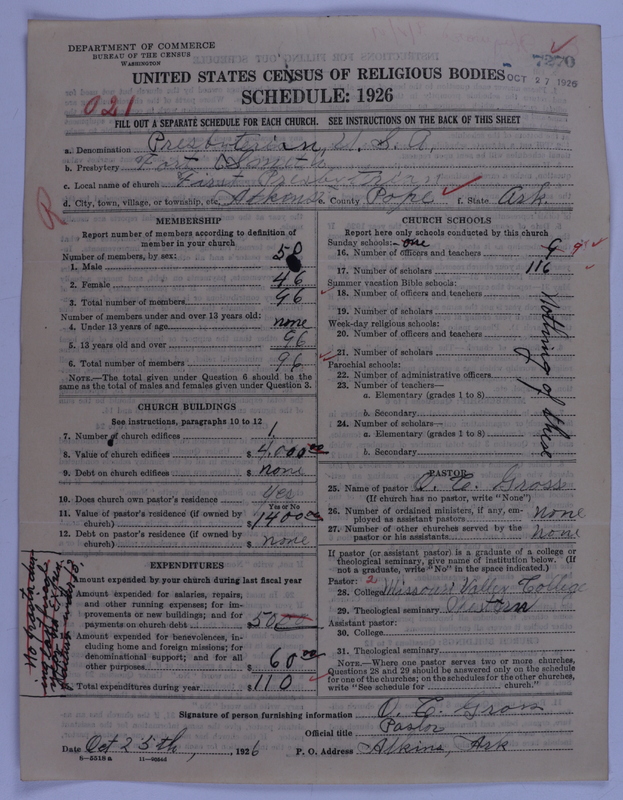 DEPARTMENT OF COMMERCE
BUREAU OF THE CENSUS
WASHINGTON
7270
UNITED STATES CENSUS OF RELIGIOUS BODIES
OCT 27 1926
SCHEDULE: 1926
021
FILL OUT A SEPARATE SCHEDULE FOR EACH CHURCH. SEE INSTRUCTIONS ON THE BACK OF THIS SHEET
a. Denomination Presbyterian, U.S.A.
b. Presbytery Fort Smith
c. Local name of church First Presbyterian
d. City, town, village, or township, etc, Atkins e. County Pope f. State Ark
R
MEMBERSHIP
Report number of members according to definition of
member in your church
Number of members, by sex:
1. Male 50
2. Female 46
3. Total number of members 96
Number of members under and over 13 years old:
4. Under 13 years of age none
5. 13 years old and over 96
6. Total number of members 96
NOTE.—The total given under Question 6 should be the
same as the total of males and females given under Question 3.
CHURCH BUILDINGS
See instructions, paragraphs 10 to 12
7. Number of church edifices 1.
8. Value of church edifices $ 4,000 00
9. Debt on church edifices $ none
10. Does church own pastor's residence Yes
Yes or No
11. Value of pastor's residence (if owned by
church) $ 1400 00
12. Debt on pastor's residence (if owned by
church) $ none
EXPENDITURES
Amount expended by your church during last fiscal year
Amount expended for salaries, repairs,
and other running expenses; for im-
provements or new buildings; and for
payments on church debt $ 50 00
Amount expended for benevolences, in-
cluding home and foreign missions; for
denominational support; and for all
other purposes $ 60 00
Total expenditures during year $ 110
No pastor
CHURCH SCHOOLS
Report here only schools conducted by this church
Sunday schools:- one
16. Number of officers and teachers 9 9
17. Number of scholars 116
Summer vacation Bible schools:
18. Number of officers and teachers
19. Number of scholars
Week-day religious schools:
20. Number of officers and teachers
21. Number of scholars
Parochial schools:
22. Number of administrative officers
23. Number of teachers—
a. Elementary (grades 1 to 8)
b. Secondary
24. Number of scholars—
a. Elementary (grades 1 to 8)
b. Secondary
Nothing of these
PASTOR
25. Name of pastor O. C. Gross
(If church has no pastor, write "None")
26. Number of ordained ministers, if any, em-
ployed as assistant pastors none
27. Number of other churches served by the
pastor or his assistants none
If pastor (or assistant pastor) is a graduate of a college or
theological seminary, give name of institution below. (If
not a graduate, write "No" in the space indicated.)
Pastor: 2
28. College Missouri Valley College
29. Theological seminary Western
Assistant pastor:
30. College
31. Theological seminary
NOTE.—Where one pastor serves two or more churches,
Questions 28 and 29 should be answered only on the schedule
for one of the churches; on the schedules for the other churches,
write "See schedule for church."
Signature of person furnishing information O. C. Gross
Official title Pastor
Date Oct 25th, 1926 P. O. Address Atkins, Ark